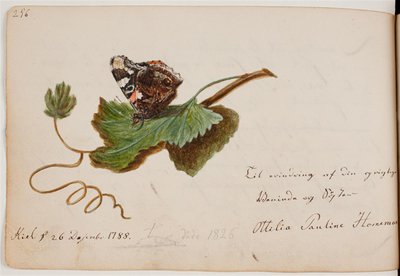 296
Til erindring af din oprigtige
Veninde og Syster
Ottilia Pauline Hornemann
Kiel d 26 Decembr. 1788.
døde 1826